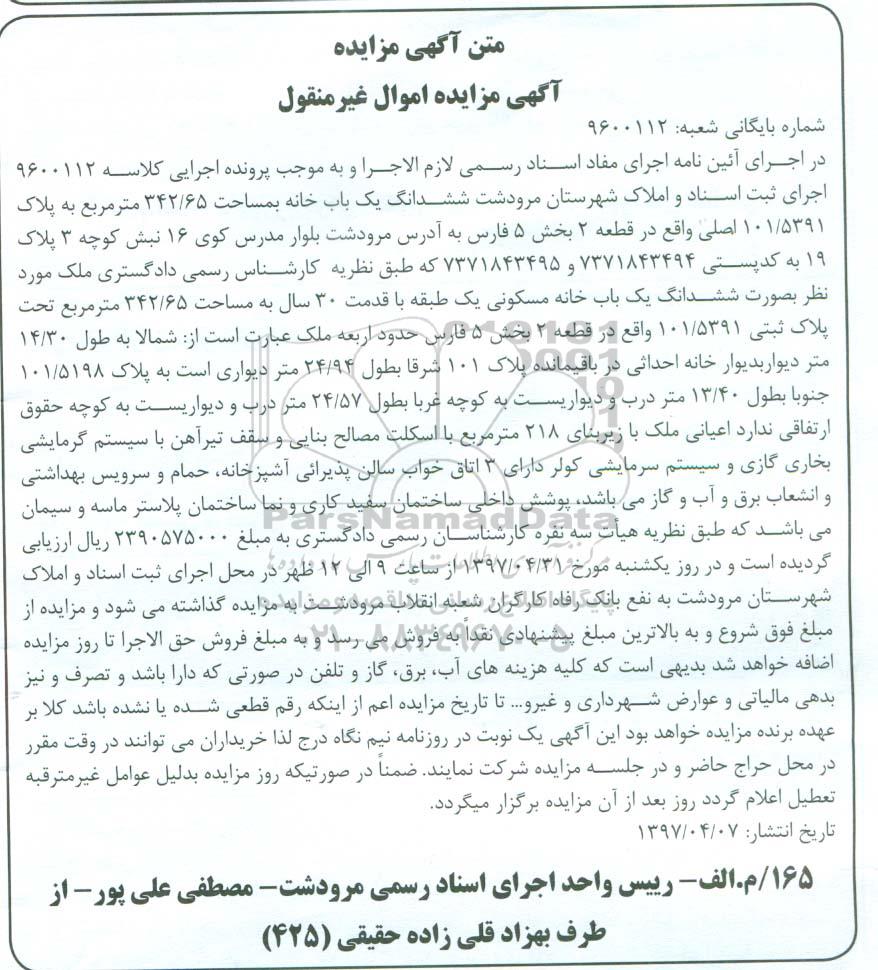 متن آگهی مزایده
آگهی مزایده اموال غیرمنقول
شماره بایگانی شعبه: ۹۶۰۰۱۱۲
در اجرای آئین نامه اجرای مفاد اسناد رسمی لازم الاجرا و به موجب پرونده اجرایی کلاسه ۹۶۰۰۱۱۲
اجرای ثبت اسناد و املاک شهرستان مرودشت ششدانگ یک باب خانه بمساحت ۳۴۲/۶۵ مترمربع به پلاک
۱۰۱/۵۳۹۱ اصلی واقع در قطعه ۲ بخش ۵ فارس به آدرس مرودشت بلوار مدرس کوی ۱۶ نبش کوچه ۳ پلاک
۱۹ به کدپستی ۷۳۷۱۸۴۳۴۹۴ و ۷۳۷۱۸۴۳۴۹۵ که طبق نظریه کارشناس رسمی دادگستری ملک مورد
نظر بصورت ششدانگ یک باب خانه مسکونی یک طبقه با قدمت ۳۰ سال به مساحت ۳۴۲/۶۵ مترمربع تحت
پلاک ثبتی ۱۰۱/۵۳۹۱ واقع در قطعه ۲ بخش ۵ فارس حدود اربعه ملک عبارت است از: شمالا به طول ۱۴/۳۰
متر دیواربدیوار خانه احداثی در باقیمانده پلاک ۱۰۱ شرقا بطول ۲۴/۹۴ متر دیواری است به پلاک ۱۰۱/۵۱۹۸
جنوبا بطول ۱۳/۴۰ متر درب و دیواریست به کوچه غربا بطول ۲۴/۵۷ متر درب و دیواریست به کوچه حقوق
ارتفاقی ندارد اعیانی ملک با زیربنای ۲۱۸ مترمربع با اسکلت مصالح بنایی و سقف تیرآهن با سیستم گرمایشی
بخاری گازی و سیستم سرمایشی کولر دارای ۳ اتاق خواب سالن پذیرائی آشپزخانه، حمام و سرویس بهداشتی
و انشعاب برق و آب و گاز می باشد، پوشش داخلی ساختمان سفید کاری و نما ساختمان پلاستر ماسه و سیمان
می باشد که طبق نظریه هیأت سه نفره کارشناسان رسمی دادگستری به مبلغ ۲۳۹۰۵۷۵۰۰۰ ریال ارزیابی
گردیده است و در روز یکشنبه مورخ ۱۳۹۷/۰۴/۳۱ از ساعت ۹ الی ۱۲ ظهر در محل اجرای ثبت اسناد و املاک
شهرستان مرودشت به نفع بانک رفاه کارگران شعبه انقلاب مرودشت به مزایده گذاشته می شود و مزایده از
مبلغ فوق شروع و به بالاترین مبلغ پیشنهادی نقداً به فروش می رسد و به مبلغ فروش حق الاجرا تا روز مزایده
اضافه خواهد شد بدیهی است که کلیه هزینه های آب، برق، گاز و تلفن در صورتی که دارا باشد و تصرف و نیز
بدهی مالیاتی و عوارض شهرداری و غیرو... تا تاریخ مزایده اعم از اینکه رقم قطعی شده یا نشده باشد کلا بر
عهده برنده مزایده خواهد بود این آگهی یک نوبت در روزنامه نیم نگاه درج لذا خریداران می توانند در وقت مقرر
در محل حراج حاضر و در جلسه مزایده شرکت نمایند. ضمناً در صورتیکه روز مزایده بدلیل عوامل غیرمترقبه
تعطیل اعلام گردد روز بعد از آن مزایده برگزار میگردد.
تاریخ انتشار: ۱۳۹۷/۰۴/۰۷
۱۶۵/م.الف- رییس واحد اجرای اسناد رسمی مرودشت- مصطفی علی پور- از
طرف بهزاد قلی زاده حقیقی (۴۲۵)
ParsNamadData
۰۲۱-۸۸۳۴۹۶۷۰-۵